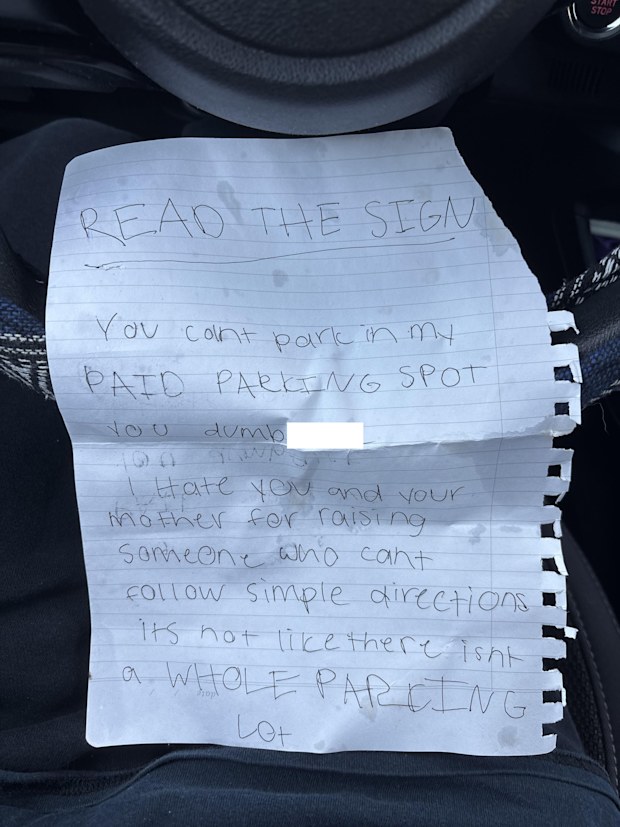 START
STOP
READ THE SIGN
You cant park in my
PAID PARKING SPOT
you dumb
I Hate you and your
mother for raising
someone who cant
follow simple directions
its not like there isnt
a WHOLE PARKING
Lot